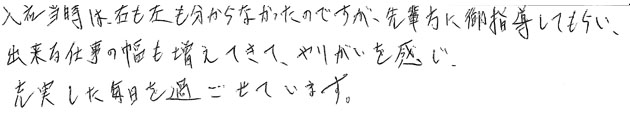 入社当時は、右も左も分からなかったのですが、先輩方に御指導してもらい、
出来る仕事の幅も増えてきて、やりがいを感じ、
充実した毎日を過ごせています。